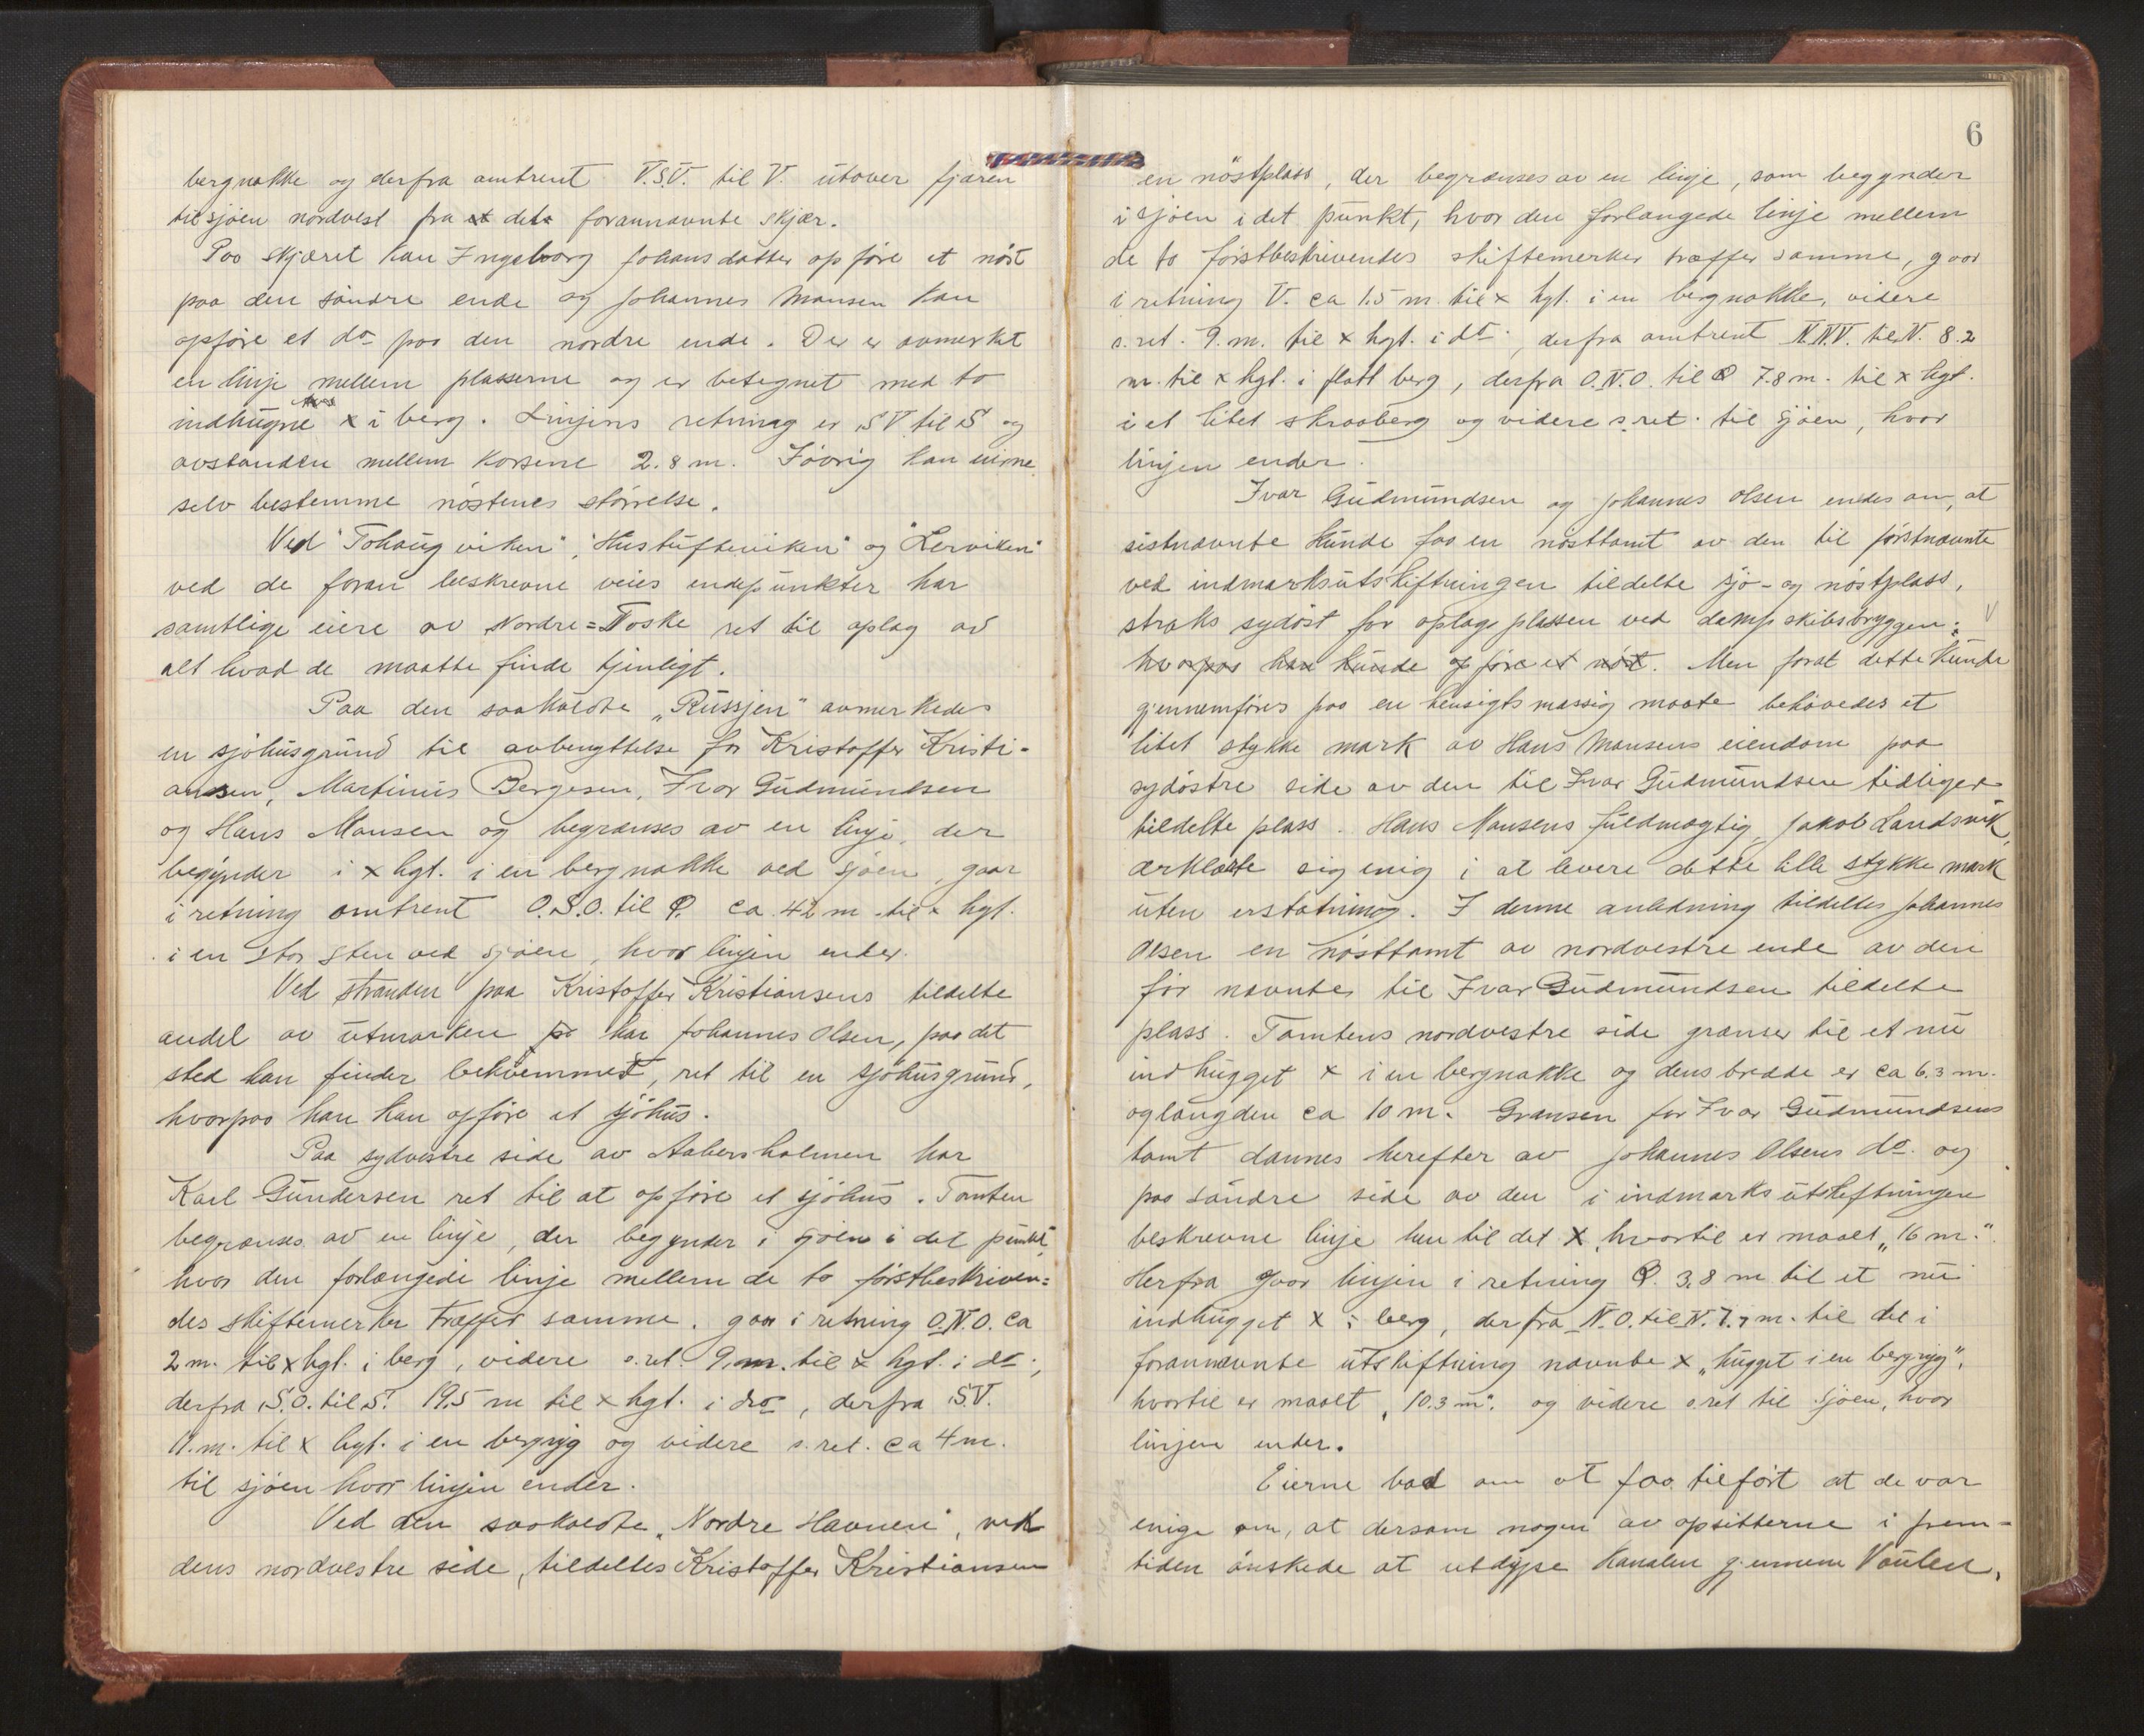 bergnakke og derfra omtrent V.S.V. til V. utover fjæren
til sjøen nordvest fra et det forannævnte skjær.
Paa skjæret kan Ingeborg Johansdatter opføre et nøst
paa den søndre ende og Johannes Monsen kan
opføre et do paa den nordre ende. Der er avmerket
en linje mellem plasserne og er betegnet med to
indhugne x i berg. Linjens retning er SV til S og
avstanden mellem korsene 2.8 m. Iøvrig kan eierne
selv bestemme nøstenes størrelse.
Ved "Tohaugviken", "Hustufteviken" og "Lerviken"
ved de foran beskrevne veies endepunkter har
samtlige eiere av Nordre=Toske ret til oplag av
alt hvad de maatte finde tjenligt.
Paa den saakaldte "Russjen" avmerkedes
en sjøhusgrund til avbenyttelse for Kristoffer Kristi-
ansen, Martinus Bergesen, Ivar Gudmundsen
og Hans Monsen og begrænses av en linje, der
begynder i x hgt. i en bergnakke ved sjøen, gaar
i retning omtrent O.S.O. til O. ca 42 m til x hgt.
i en stor sten ved sjøen, hvor linjen ender.
Ved stranden paa Kristoffer Kristiansens tildelte
andel av utmarken har Johannes Olsen, paa det
sted han finder bekvemmest, ret til en sjøhusgrund,
hvorpaa han kan opføre et sjøhus.
Paa sydvestre side av Aabersholmen har
Karl Gundersen ret til at opføre et sjøhus. Tomten
begrænses av en linje, der begynder i sjøen i det punkt,
hvor den forlængede linje mellem de to førstbeskriven=
des skiftemerker træffer samme, gaar i retning O.N.O. ca
2 m. til x hgt. i berg, videre s.ret. 9 m. til x hgt. i do;
derfra S.O. til S. 19.5 m til x hgt. i do, derfra S.V.
11. m. til x hgt. i en bergryg og videre s.ret. ca 4 m.
til sjøen hvor linjen ender.
Ved den saakaldte "Nordre Havnen", ved
dens nordvestre side, tildeltes Kristoffer Kristiansen
6
en nøstplass, der begrænses av en linje, som begynder
i sjøen i det punkt, hvor den forlængede linje mellem
de to førstbeskrivendes skiftemerker træffer samme, gaar
i retning V. ca 1.5 m til x hgt. i en bergnakke, videre
s.ret. 9. m. til x hgt. i do; derfra omtrent N.N.V. til N. 8.2
m. til x hgt. i flatt berg, derfra O.N.O. til O 7.8 m. til x hgt.
i et litet skraaberg og videre s.ret. til sjøen, hvor
linjen ender.
Ivar Gudmundsen og Johannes Olsen enedes om, at
sistnævnte kunde faa en nøsttomt av den til førstnævnte
ved indmarksutskiftningen tildelte sjø- og nøstplass,
straks sydøst for oplagsplassen ved dampskibsbryggen.
hvorpaa han kunde opføre et nøst. Men forat dette kunde
gjennemføres paa en hensigtsmæssig maate behøvedes et
litet stykke mark av Hans Monsens eiendom paa
sydøstre side av den til Ivar Gudmundsen tidligere
tildelte plass. Hans Monsens fuldmægtig, Jakob Landsvik,
erklærte sig enig i at levere dette lille stykke mark
uten erstatning. I denne anledning tildeltes Johannes
Olsen en nøsttomt av nordvestre ende av den
før nævnte til Ivar Gudmundsen tildelte
plass. Tomtens nordvestre side grænser til et nu
indhugget x i en bergnakke og dens bredde er ca 6.3 m.
og længden ca 10 m. Grænsen for Ivar Gudmundsens
tomt dannes herefter av Johannes Olsens do. og
paa søndre side av den i indmarksutskiftningen
beskrevne linje hen til det x, hvortil er maalt "16 m."
Herfra gaar linjen i retning O. 3,8 m til et nu
indhugget x i berg, derfra N.O. til N. 7.7 m. til det i
forannævnte utskiftning nævnte x "hugget i en bergryg",
hvortil er maalt "10.3 m". og videre s.ret til sjøen, hvor
linjen ender.
Eierne bad om at faa tilført at de var
enige om, at dersom nogen av opsitterne i frem-
tiden ønskede at utdype kanalen gjennem Vaulen,